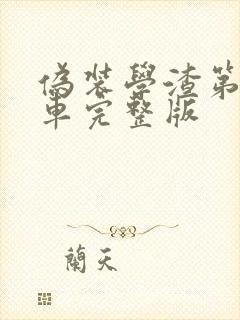 偽裝學渣第
車完整版
蘭天